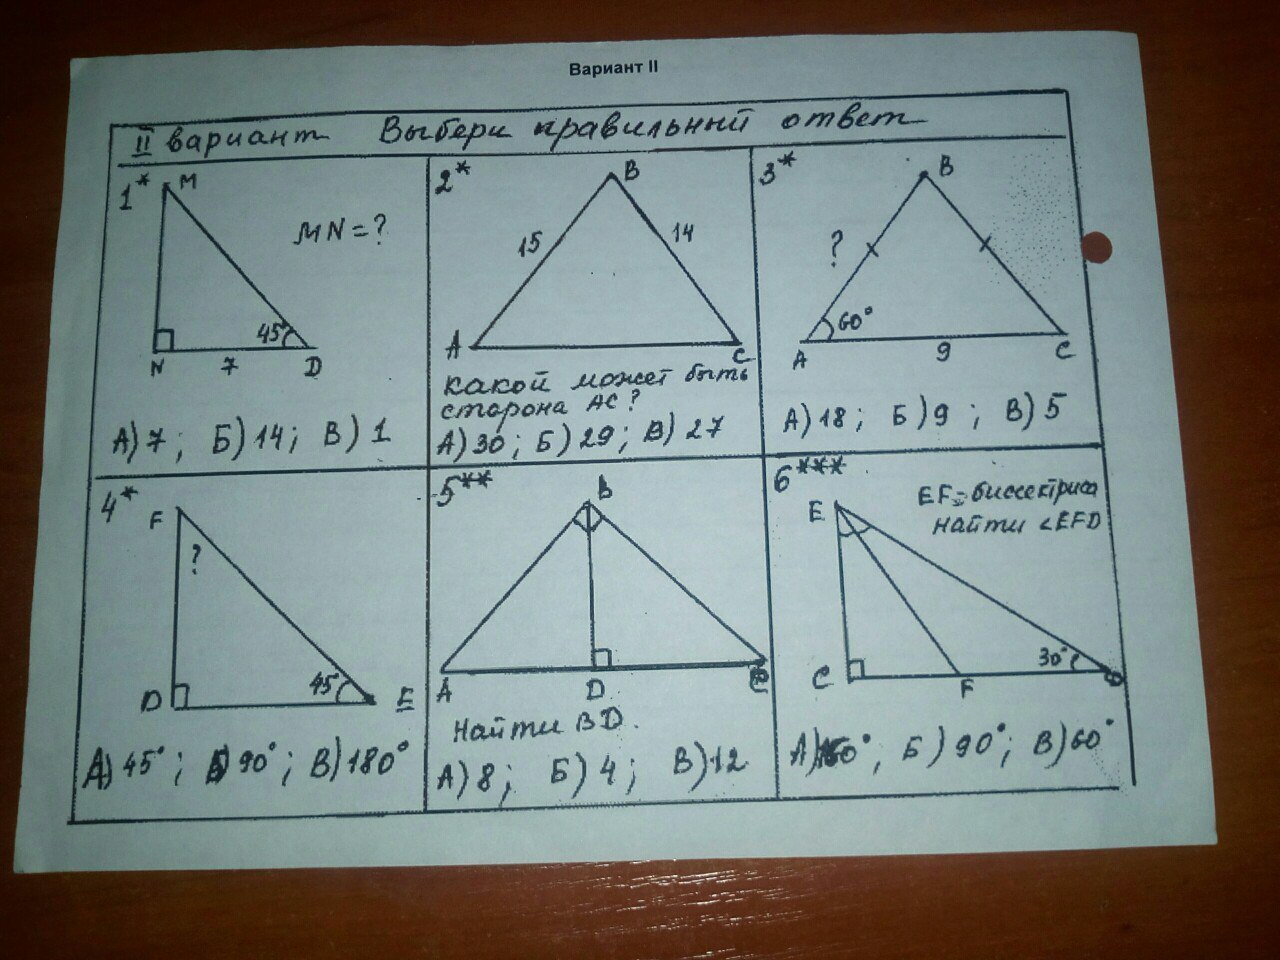 Вариант II
II вариант Выбери правильный ответ
1*
M
MN = ?
45°
N 7 D
А) 7 ; Б) 14 ; В) 1
2*
B
15 14
A C
какой может быть
сторона AC ?
А) 30 ; Б) 29 ; В) 27
3*
B
?
60°
A 9 C
А) 18 ; Б) 9 ; В) 5
4*
F
?
45°
D E
А) 45° ; Б) 90° ; В) 180°
5**
B
A D C
Найти BD.
А) 8 ; Б) 4 ; В) 12
6***
EF - биссектриса
найти ∠EFD
E
30°
C F D
А) ; Б) 90° ; В) 60°